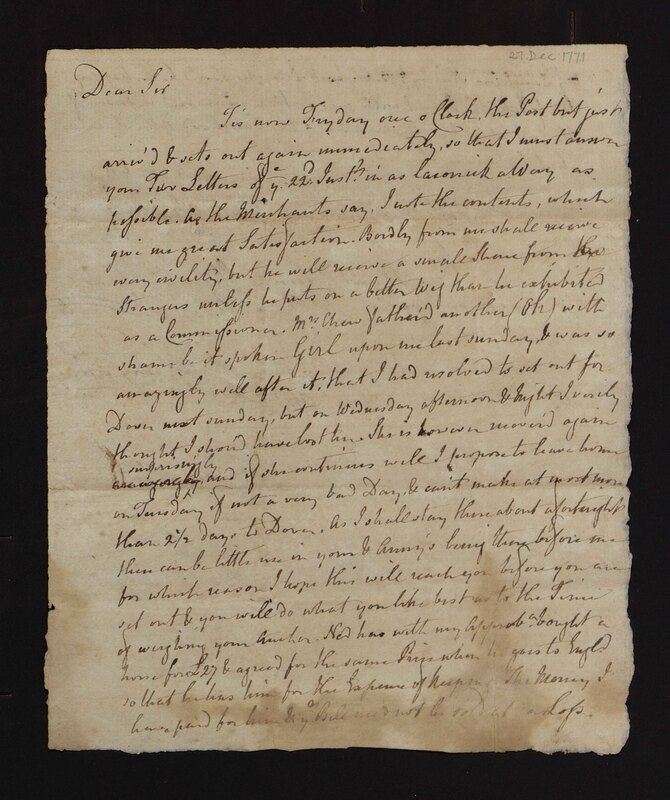 27 Dec 1771
Dear Sir
Tis now Fryday one o Clock, the Post but just
arriv'd & sets out again immediately, so that I must answer
your Two Letters of ye 22d Inst. in as laconick a Way as
possible. As the Merchants say, I note the contents, which
give me great Satisfaction. Bordly from me shall receive
every civility, but he will receive a small Share from the
Strangers unless he puts on a better Wig than he exhibited
as a Commissioner. Mrs Chew father'd another (Oh) with
shame be it spoken Girl upon me last sunday, & was so
amazingly well after it, that I had resolved to set out for
Dover next sunday, but on Wednesday afternoon & Night I verily
thought I should have lost her. She is however recover'd again
surprisingly
amazingly, and if she continues well I propose to leave home
on Tuesday if not a very bad Day, & can't make at most more
than 2 1/2 days to Dover. As I shall stay there about a fortnight
there can be little use in your & Anny's being there before me
for which reason I hope this will reach you before you are
set out & you will do what you like best as to the Time
of weighing your Anchor. Ned has with my Approbn bought a
horse for £27 & agreed for the same Price when he goes to Engld
so that he has him for the Expence of keeping. The Money I
have paid for him & ye Bill need not be sold at a Loss.